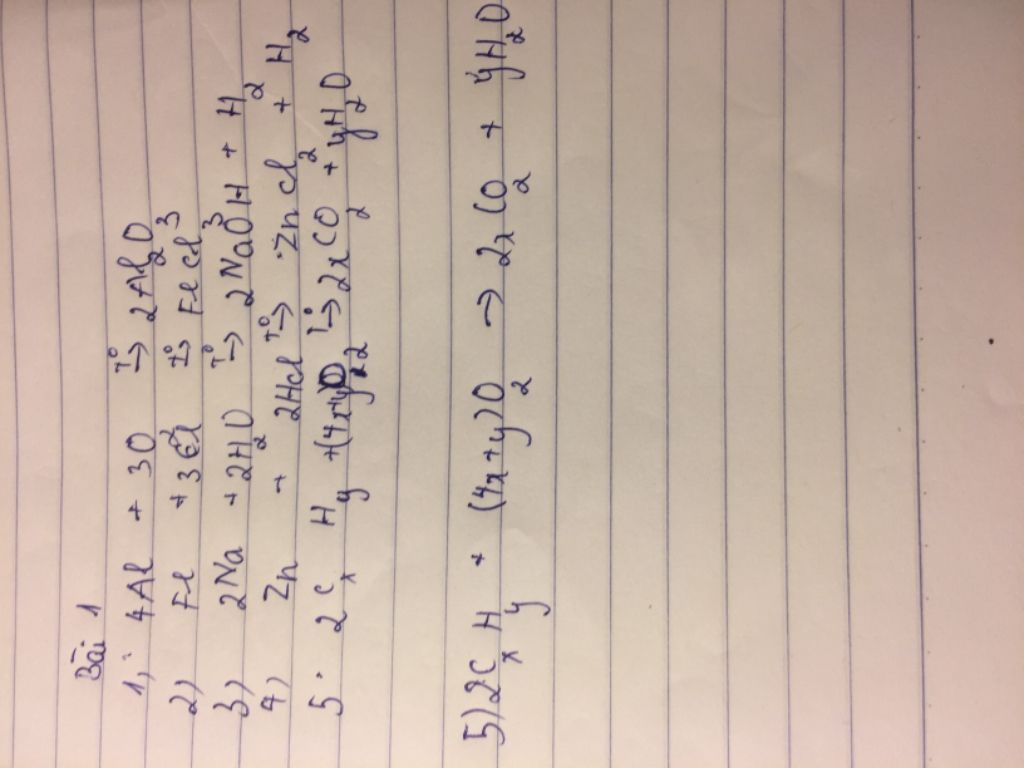 Bài 1
1, 4Al + 3O T°→ 2Al₂O₃
2) Fe + 3Cl T°→ FeCl₃
3) 2Na + 2H₂O T°→ 2NaOH + H₂
4) Zn + 2Hcl T°→ Zncl₂ + H₂
5. 2CₓHy + (4x+y)O₂ T°→ 2xCO₂ + yH₂O
5) 2CₓHy + (4x+y)O₂ → 2xCO₂ + yH₂O